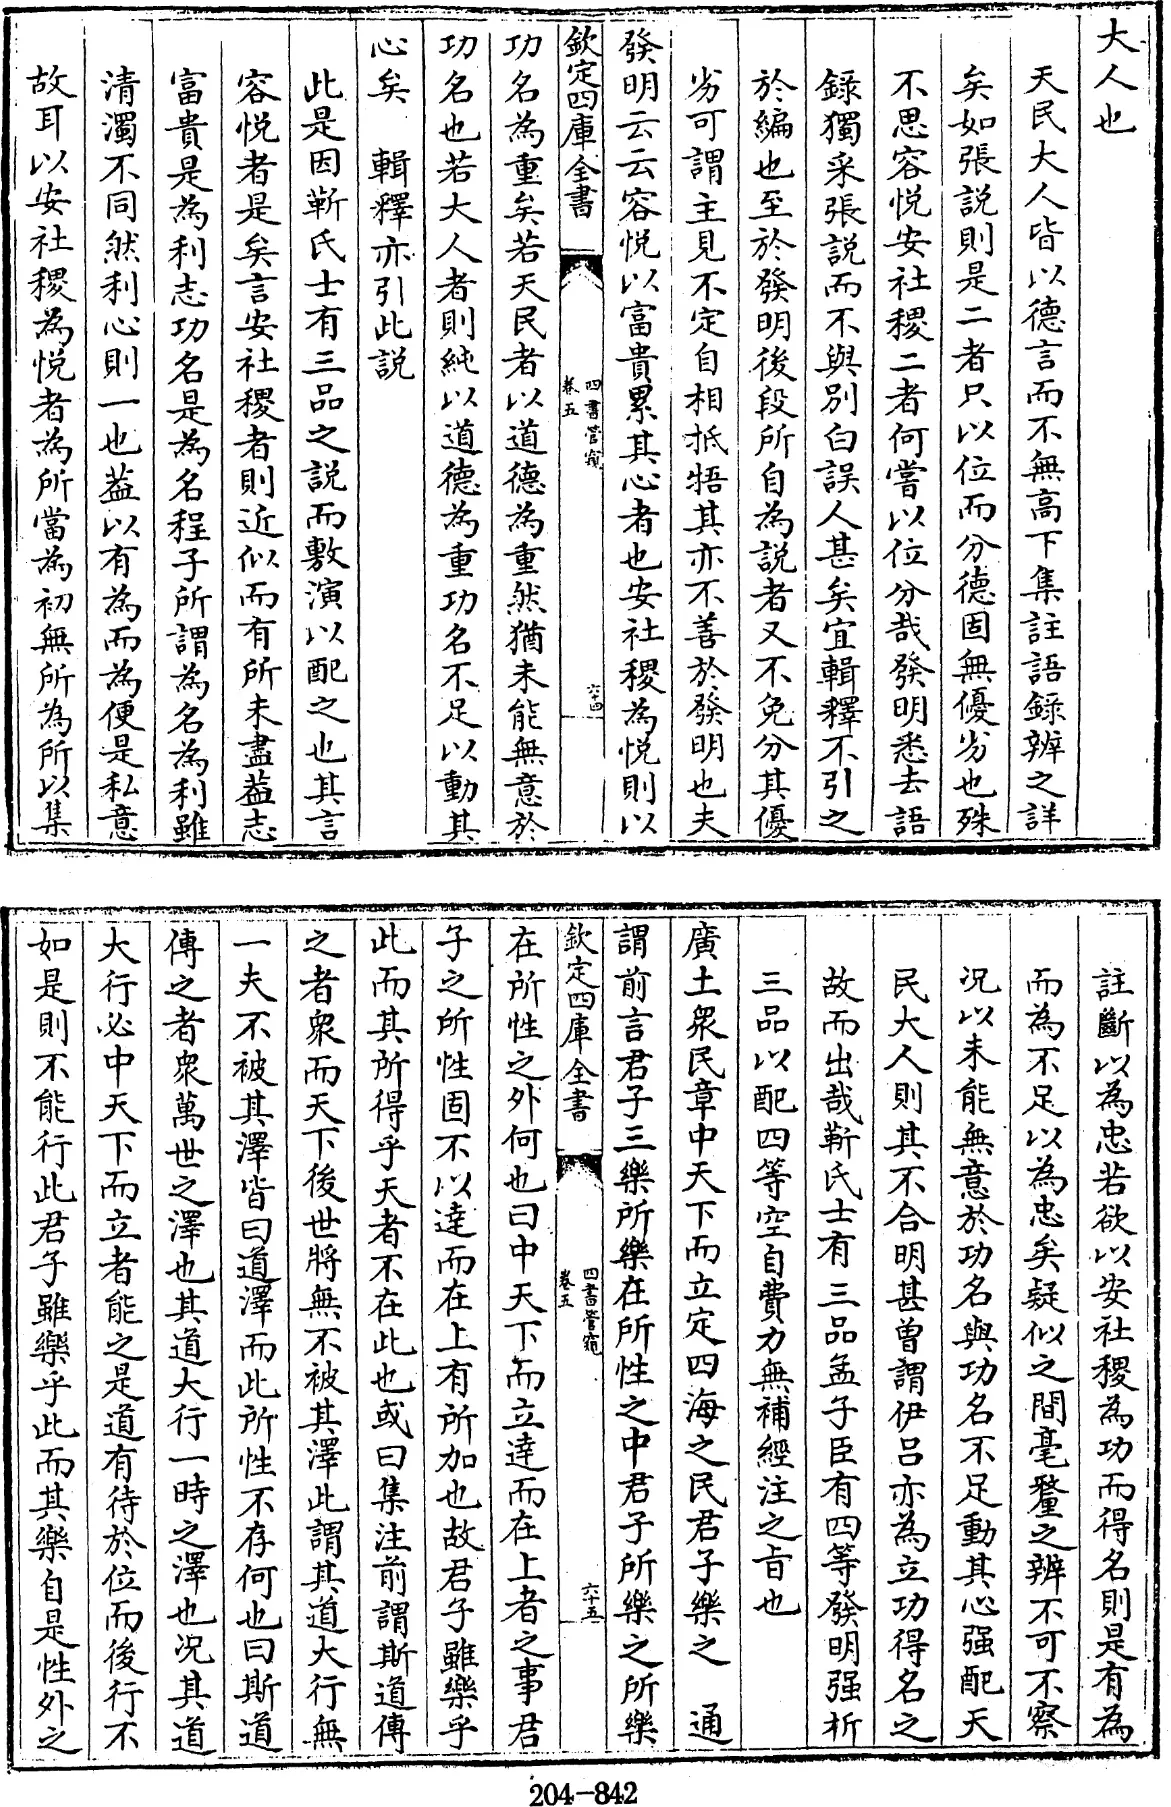 大人也
天民大人皆以德言而不無高下集註語錄辨之詳
矣如張説則是二者只以位而分德固無優劣也殊
不思容悦安社稷二者何嘗以位分哉發明悉去語
錄獨采張説而不與別白誤人甚矣宜輯釋不引之
於編也至於發明後段所自為説者又不免分其優
劣可謂主見不定自相抵牾其亦不善於發明也夫
發明云云容悦以富貴累其心者也安社稷為悦則以
欽定四庫全書
四書管窺
卷五
六十四
功名為重矣若天民者以道德為重然猶未能無意於
功名也若大人者則純以道德為重功名不足以動其
心矣　輯釋亦引此説
此是因靳氏士有三品之説而敷演以配之也其言
容悦者是矣言安社稷者則近似而有所未盡葢志
富貴是為利志功名是為名程子所謂為名為利雖
清濁不同然利心則一也葢以有為而為便是私意
故耳以安社稷為悦者為所當為初無所為所以集
註斷以為忠若欲以安社稷為功而得名則是有為
而為不足以為忠矣疑似之間毫釐之辨不可不察
况以未能無意於功名與功名不足動其心强配天
民大人則其不合明甚曾謂伊呂亦為立功得名之
故而出哉靳氏士有三品孟子臣有四等發明强析
三品以配四等空自費力無補經注之旨也
廣土衆民章中天下而立定四海之民君子樂之　通
謂前言君子三樂所樂在所性之中君子所樂之所樂
欽定四庫全書
四書管窺
卷五
六十五
在所性之外何也曰中天下而立達而在上者之事君
子之所性固不以達而在上有所加也故君子雖樂乎
此而其所得乎天者不在此也或曰集注前謂斯道傳
之者衆而天下後世將無不被其澤此謂其道大行無
一夫不被其澤皆曰道澤而此所性不存何也曰斯道
傳之者衆萬世之澤也其道大行一時之澤也况其道
大行必中天下而立者能之是道有待於位而後行不
如是則不能行此君子雖樂乎此而其樂自是性外之
204-842